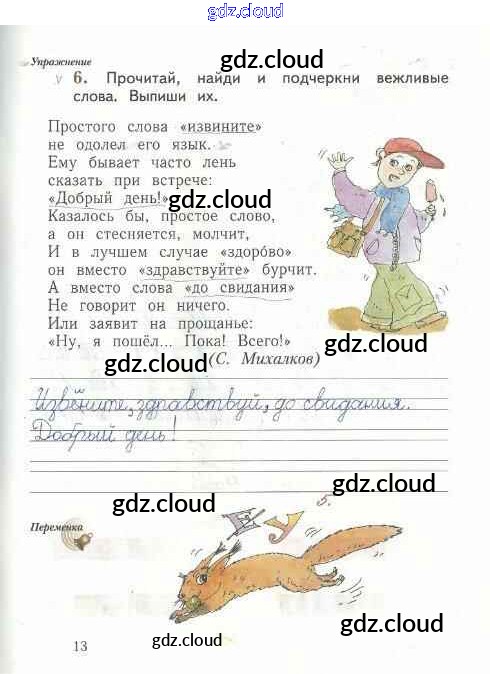 gdz.cloud
Упражнение
gdz.cloud
v 6. Прочитай, найди и подчеркни вежливые
слова. Выпиши их.
Простого слова «извините»
не одолел его язык.
Ему бывает часто лень
сказать при встрече:
«Добрый день!»
gdz.cloud
Казалось бы, простое слово,
а он стесняется, молчит,
И в лучшем случае «здоро́во»
он вместо «здравствуйте» бурчит.
gdz.cloud
А вместо слова «до свидания»
Не говорит он ничего.
Или заявит на прощанье:
«Ну, я пошёл... Пока! Всего!»
gdz.cloud
gdz.cloud
(С. Михалков)
Извените, здравствуй, до свидания.
Добрый день!
gdz.cloud
gdz.cloud
5.
Е У
Переменка
gdz.cloud
13
gdz.cloud